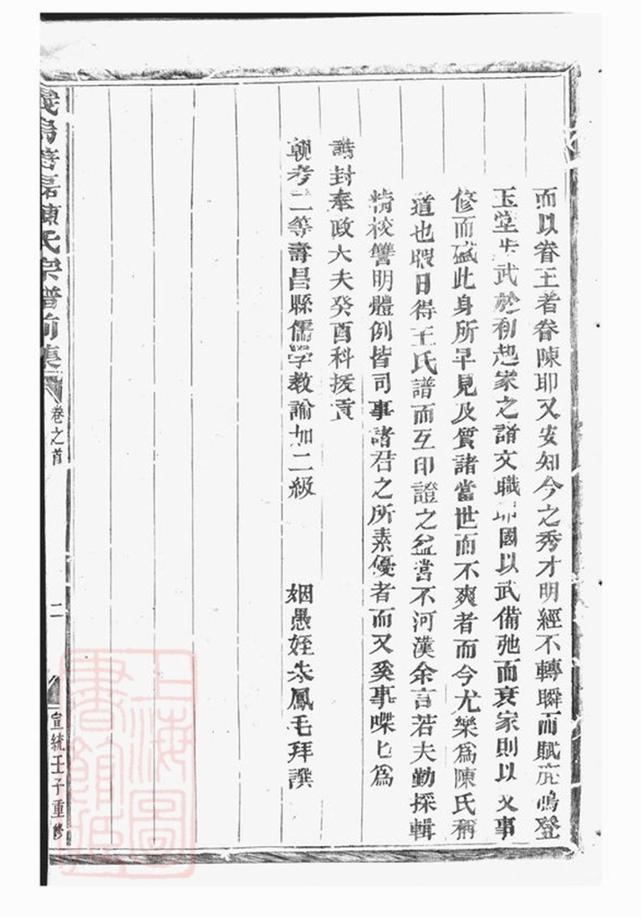 而以眷王者眷陳耶又安知今之秀才明經不轉瞬而賦鹿鳴登
玉堂步武於初起家之諸文職耶國以武備弛而衰家則以文事
修而盛此身所早見及質諸當世而不爽者而今尤樂為陳氏稱
道也暇日得王氏譜而互印證之益當不河漢余言若夫勤採輯
精校讐明體例皆司事諸君之所素優者而又奚事喋七為
誥封奉政大夫癸酉科拔貢
朝考二等壽昌縣儒學教諭加二級 姻愚姪朱鳳毛拜譔
陳氏宗譜前集 卷之首 二 宣統壬子重修
上海圖書館藏